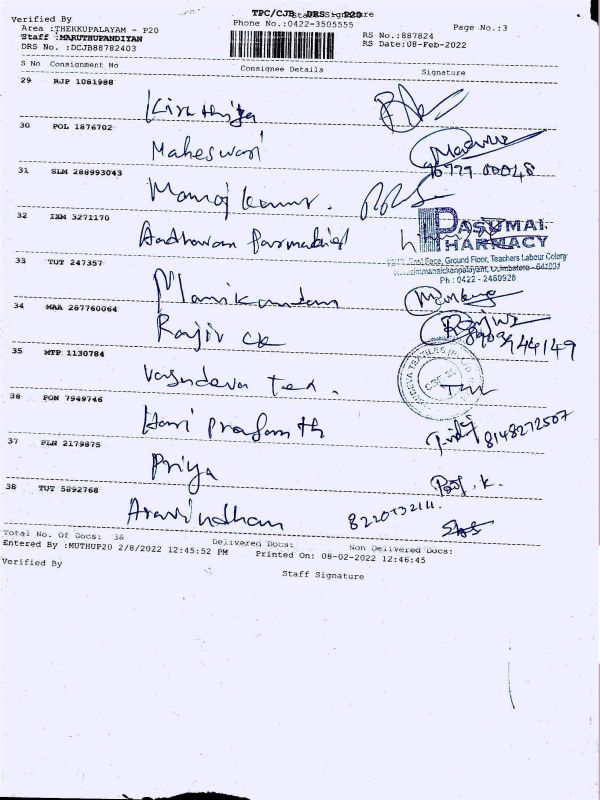 TPC/CJB DRS - P20
Verified By
Staff Signature
Area :THEKKUPALAYAM - P20
Phone No.:0422-3505555
Page No.:3
Staff :MARUTHUPANDIYAN
RS No.:887824
DRS No. :DCJB88782403
RS Date:08-Feb-2022
S No Consignment No Consignee Details Signature
29 RJP 1081988
Kiruthiga
30 POL 1876702
Maheswari
96777 00048
31 SLM 288993043
Manoj kumar.
32 IXM 3271170
PASUMAI
PHARMACY
East Face, Ground Floor, Teachers Labour Colony
Coimbatore - 641031
Ph : 0422 - 2460926
33 TUT 247357
Manikandan
34 MAA 287760064
Rajiv CK
944149
35 MTP 1130784
Vasudeva Tex.
36 PON 7949746
Hari Prasanth
8148272507
37 PLN 2179875
Priya
38 TUT 5892768
Aravindhan
Total No. Of Docs: 38 Delivered Docs: Non Delivered Docs:
Entered By :MUTHUP20 2/8/2022 12:45:52 PM Printed On: 08-02-2022 12:46:45
Verified By
Staff Signature